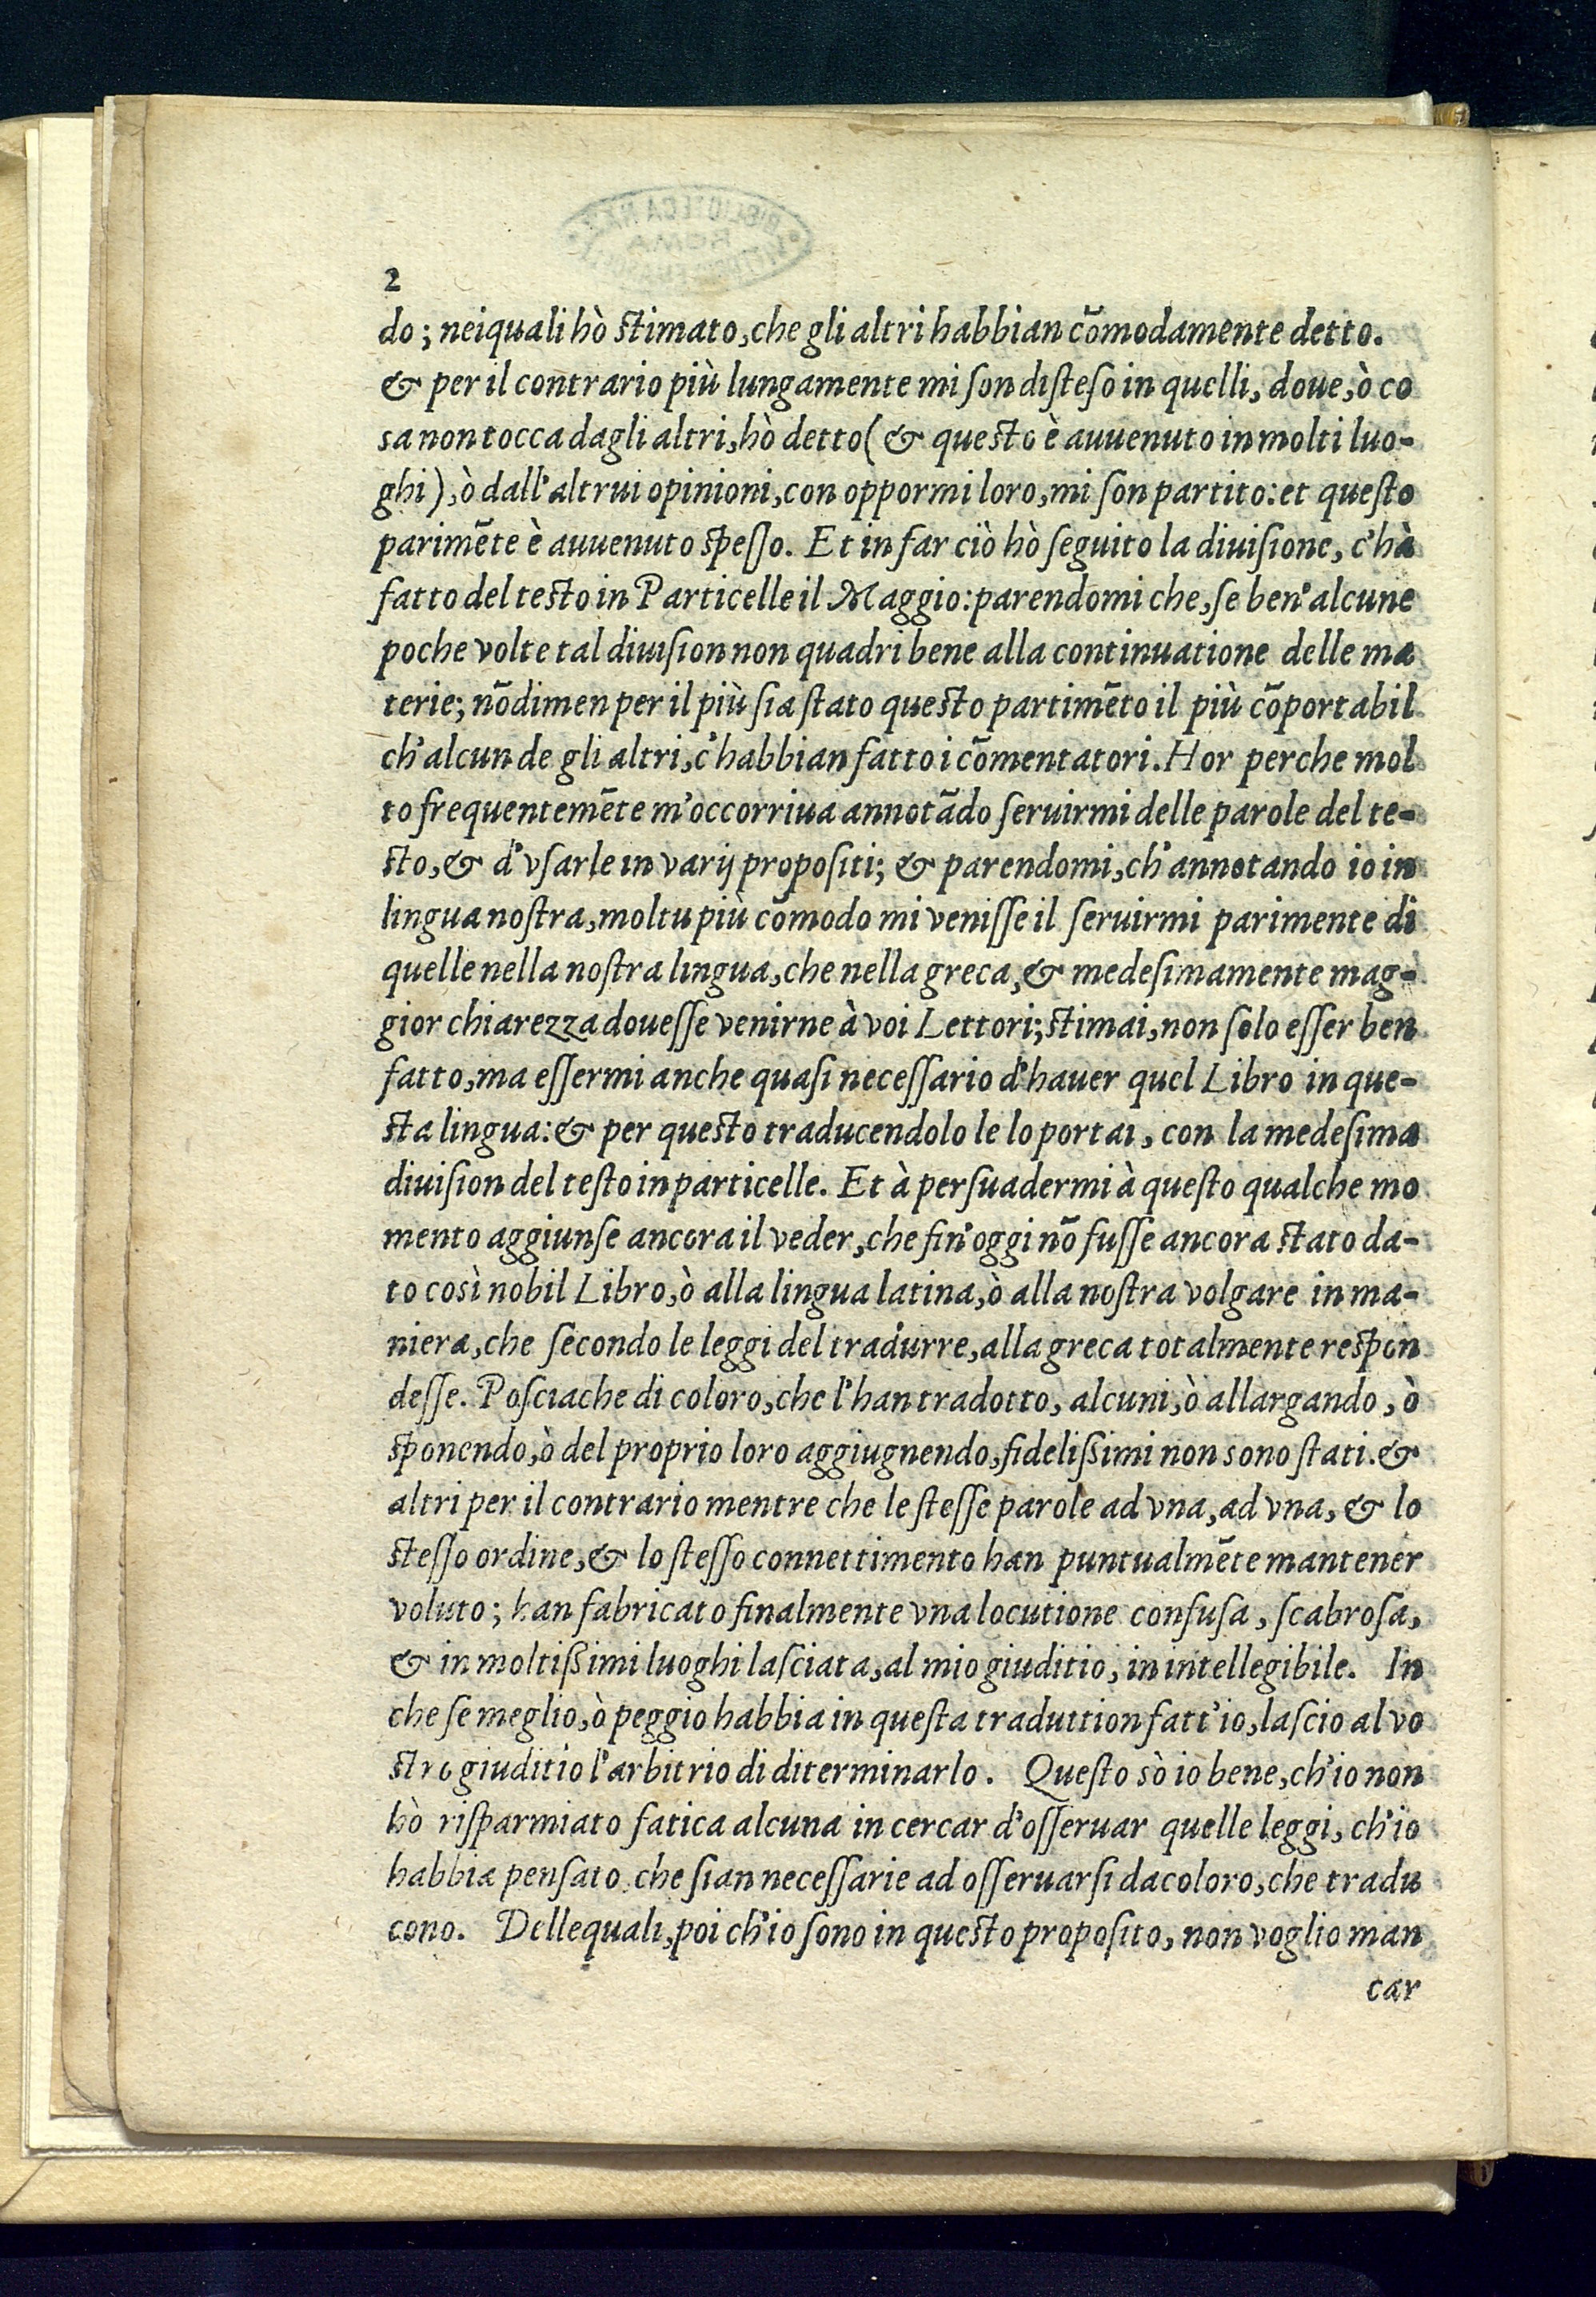 2
do; neiquali hò ſtimato, che gli altri habbian cõmodamente detto.
& per il contrario più lungamente mi ſon diſteſo in quelli, doue, ò co
sa non tocca dagli altri, hò detto (& queſto è auuenuto in molti luo-
ghi), ò dall'altrui opinioni, con oppormi loro, mi ſon partito: et queſto
parimẽte è auuenuto ſpeſſo. Et in far ciò hò ſeguito la diuiſione, c'hà
fatto del teſto in Particelle il Maggio: parendomi che, ſe ben'alcune
poche volte tal diuiſion non quadri bene alla continuatione delle ma
terie; nõdimen per il più ſia ſtato queſto partimẽto il più cõportabil
ch'alcun de gli altri, c'habbian fatto i cõmentatori. Hor perche mol
to frequentemẽte m'occorriua annotãdo ſeruirmi delle parole del te-
ſto, & d'vſarle in varij propoſiti; & parendomi, ch'annotando io in
lingua noſtra, moltu più cõmodo mi veniſſe il ſeruirmi parimente di
quelle nella noſtra lingua, che nella greca, & medeſimamente mag-
gior chiarezza doueſſe venirne à voi Lettori; ſtimai, non ſolo eſſer ben
fatto, ma eſſermi anche quaſi neceſſario d'hauer quel Libro in que-
ſta lingua: & per queſto traducendolo le lo portai, con la medeſima
diuiſion del teſto in particelle. Et à perſuadermi à queſto qualche mo
mento aggiunſe ancora il veder, che fin'oggi nõ fuſſe ancora ſtato da-
to così nobil Libro, ò alla lingua latina, ò alla noſtra volgare in ma-
niera, che ſecondo le leggi del tradurre, alla greca totalmente reſpon
deſſe. Poſciache di coloro, che l'han tradotto, alcuni, ò allargando, ò
ſponendo, ò del proprio loro aggiugnendo, fideliſsimi non sono ſtati. &
altri per il contrario mentre che le ſteſſe parole ad vna, ad vna, & lo
ſteſſo ordine, & lo ſteſſo connettimento han puntualmẽte mantener
voluto; han fabricato finalmente vna locutione confuſa, ſcabroſa,
& in moltiſsimi luoghi laſciata, al mio giuditio, in intellegibile. In
che ſe meglio, ò peggio habbia in queſta traduttion fatt'io, laſcio al vo
ſtro giuditio l'arbitrio di diterminarlo. Queſto sò io bene, ch'io non
hò riſparmiato fatica alcuna in cercar d'oſſeruar quelle leggi, ch'io
habbia penſato che ſian neceſſarie ad oſſeruarſi da coloro, che tradu
cono. Dellequali, poi ch'io ſono in queſto propoſito, non voglio man
car